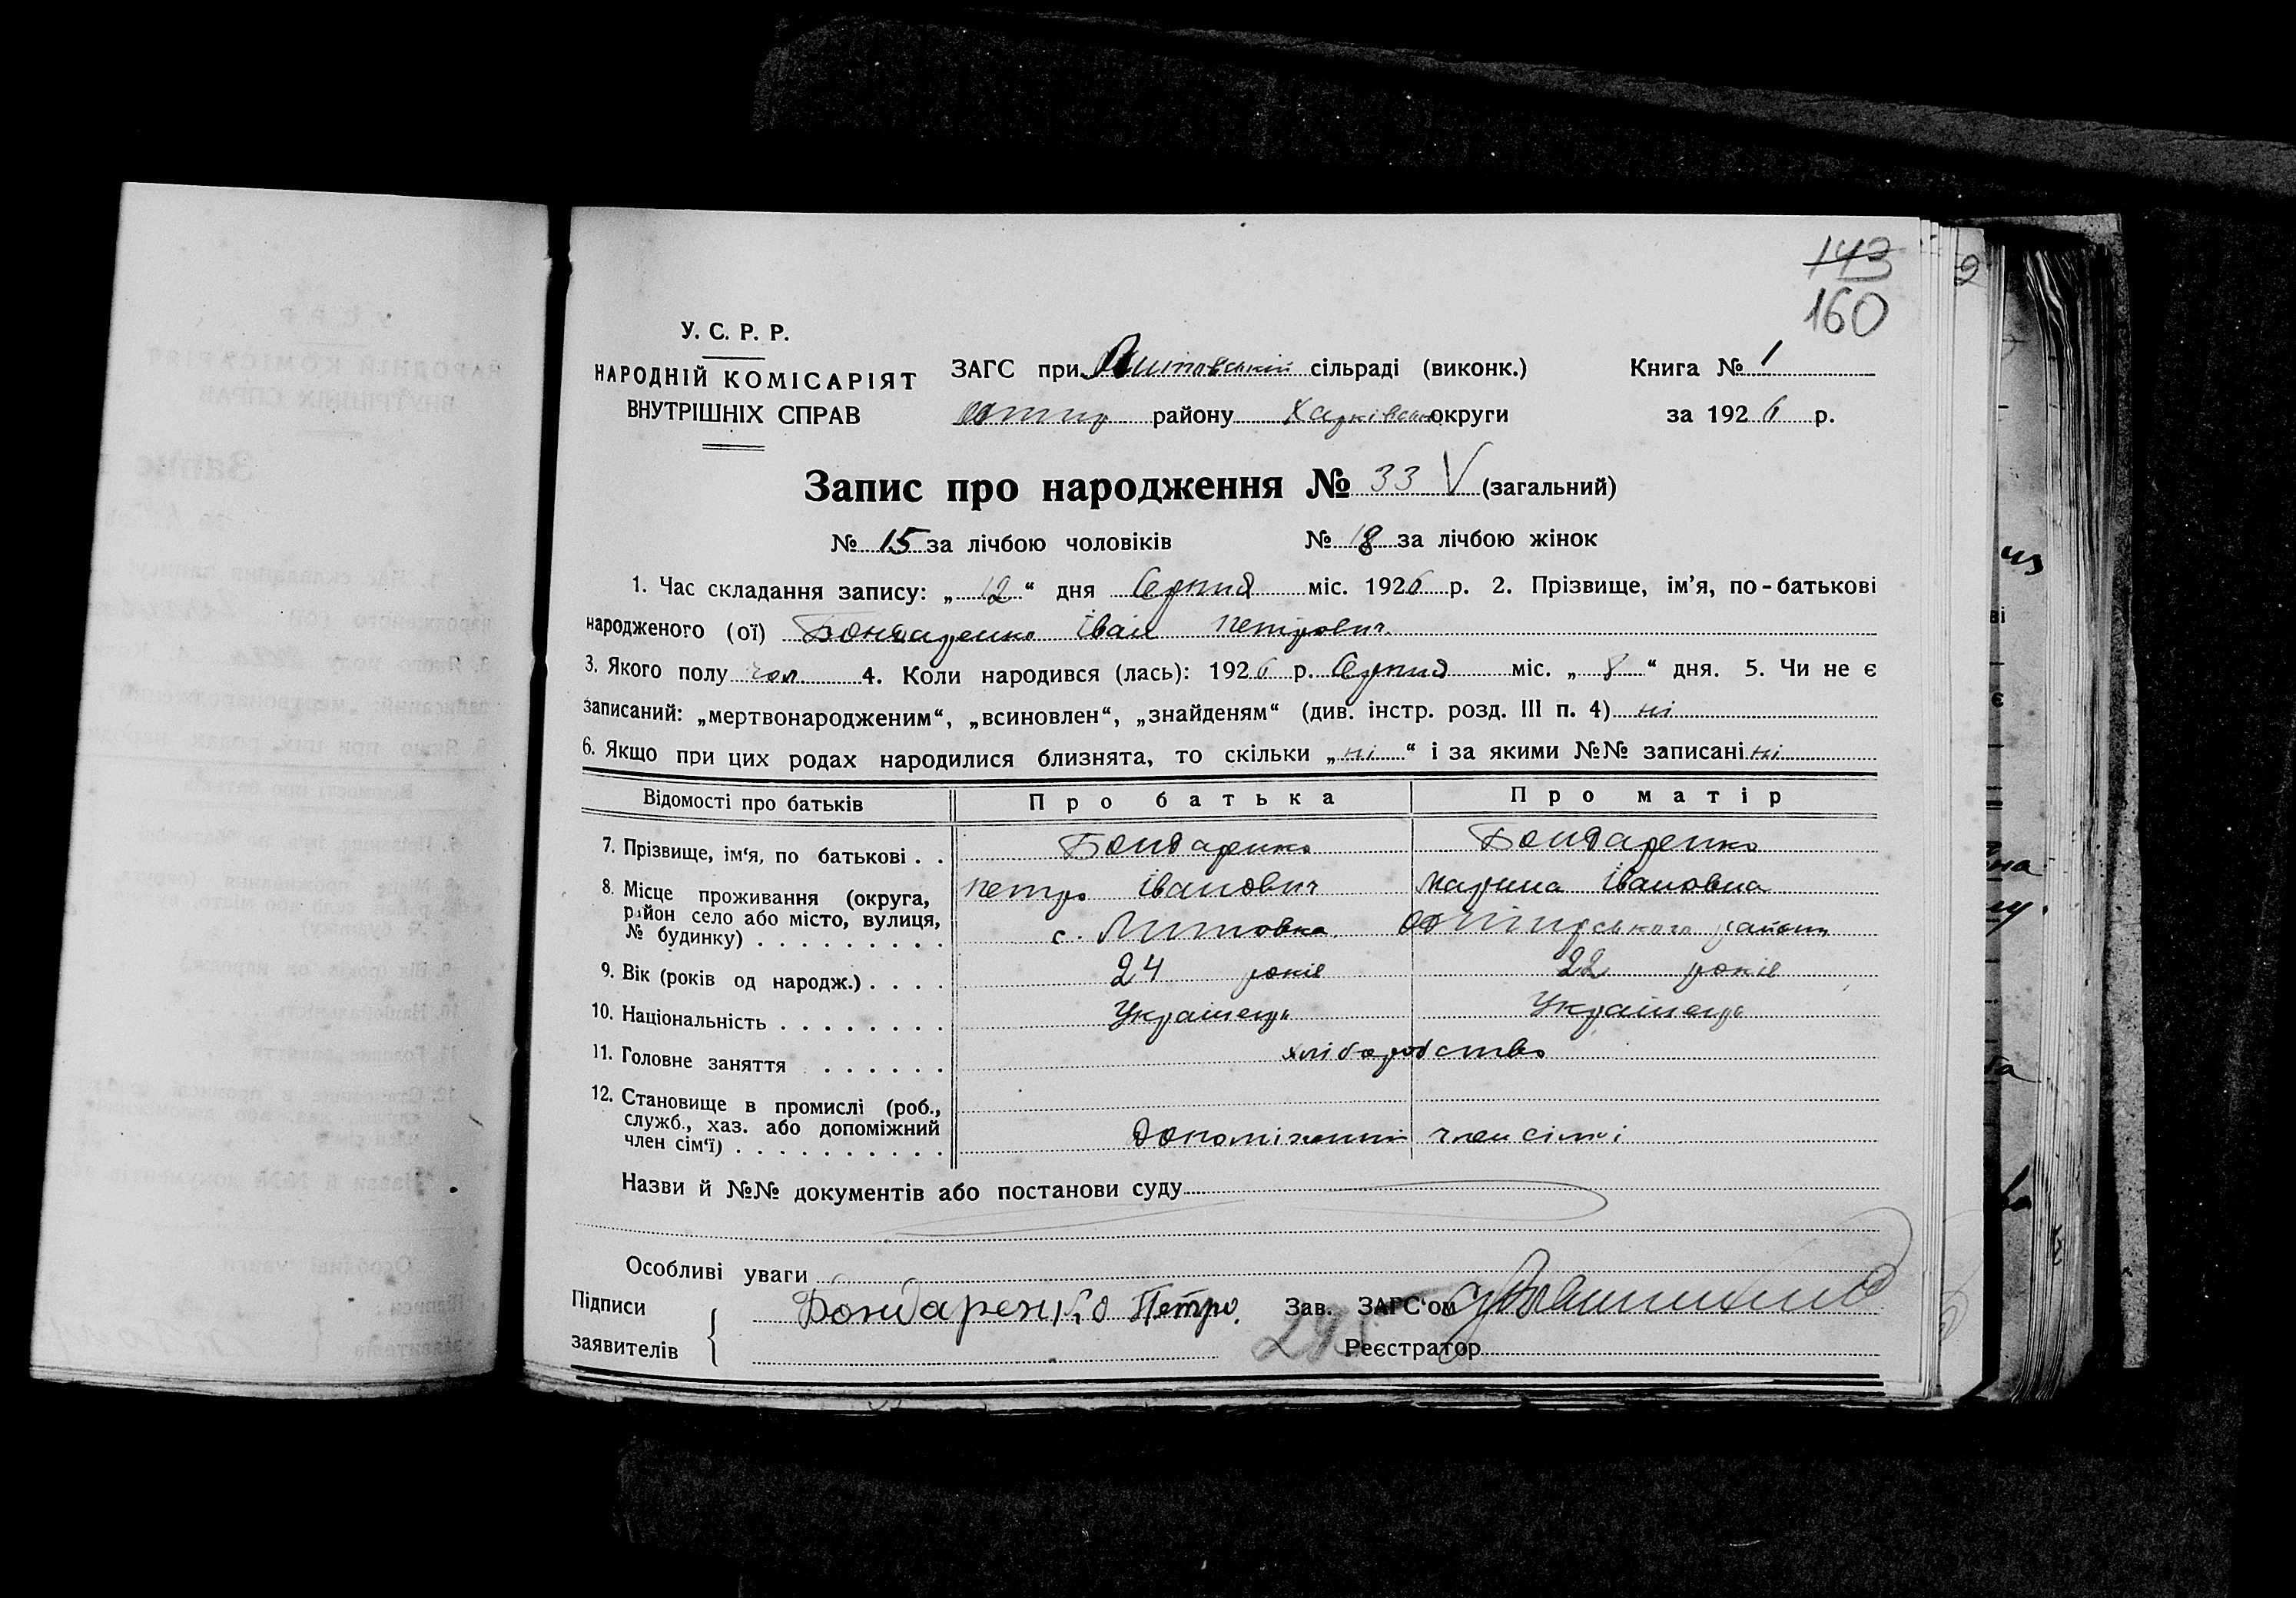 143
160
У. С. Р. Р.
НАРОДНІЙ КОМІСАРІЯТ
ВНУТРІШНІХ СПРАВ
ЗАГС при Литовській сільраді (виконк.)
району Харківськ округи
Книга № 1
за 1926 р.
Запис про народження № 33 V (загальний)
№ 15 за лічбою чоловіків № 18 за лічбою жінок
1. Час складання запису: „ 12 “ дня Серпня міс. 1926 р. 2. Прізвище, ім’я, по-батькові
народженого (ої) Бондаренко Іван Петрович
3. Якого полу чол. 4. Коли народився (лась): 1926 р. Серпня міс. „ 8 “ дня. 5. Чи не є
записаний: „мертвонародженим“, „всиновлен“, „знайденям“ (див. інстр. розд. III п. 4) ні
6. Якщо при цих родах народилися близнята, то скільки „ ні “ і за якими №№ записані ні
Відомості про батьків Про батька Про матір
7. Прізвище, ім‘я, по батькові . . Бондаренко Бондаренко
Петро Іванович Марина Івановна
8. Місце проживання (округа,
район село або місто, вулиця,
№ будинку) . . . . . . . . . с. Литовка, району
9. Вік (років од народж.) . . . . 24 років 22 років
10. Національність . . . . . . . . Українець Українець
11. Головне заняття . . . . . . хліборобство
12. Становище в промислі (роб.,
служб., хаз. або допоміжний
член сім‘ї) . . . . . . . . . . допоміжний член сімьі
Назви й №№ документів або постанови суду
Особливі уваги
Підписи
заявителів
Бондаренко Петро.
Зав. ЗАГС‘ом
Реєстратор